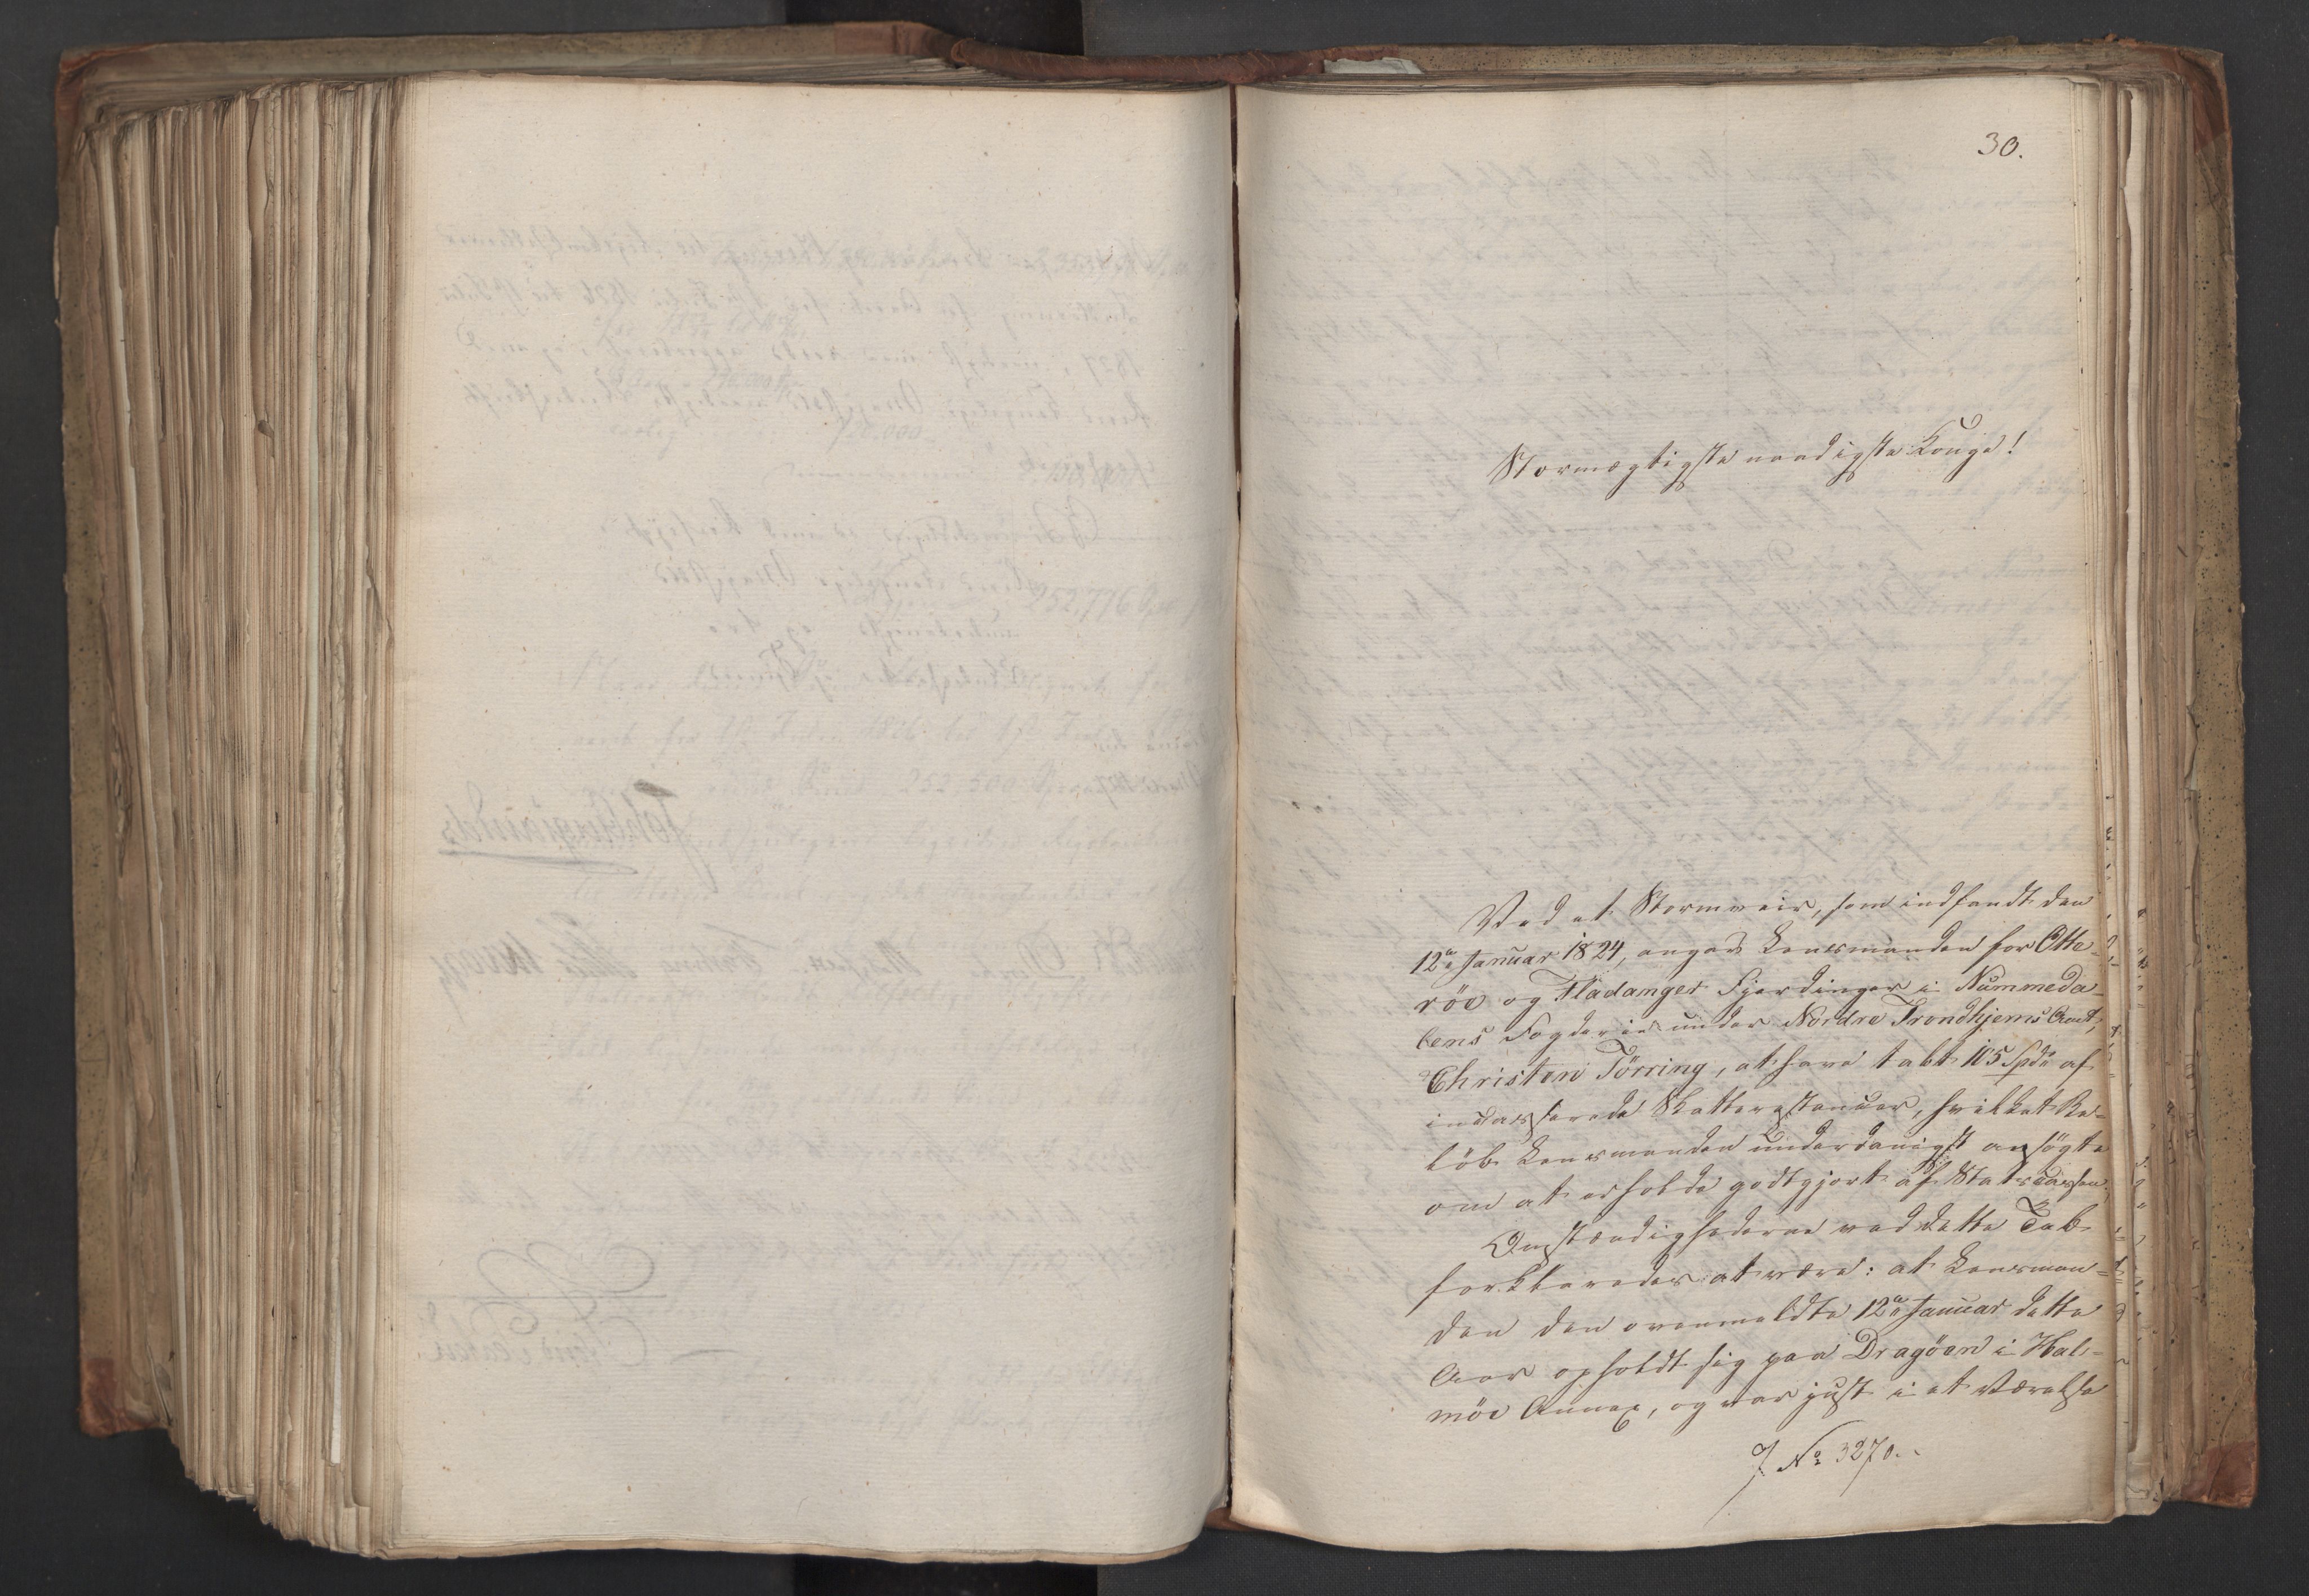 30.
Stormægtigste naadigste Konge!
Ved et Stormveir, som indfandt den
12te Januar 1824, angav Lensmanden for Otte-
röe og Fladanger Fjerdinger i Nummeda-
lens Fogderie under Nordre Trondhjems Amt,
Christen Törring, at have tabt 105 Spd. af
incasserede Skatterestancer, hvilket Be-
löb Lensmanden underdanigst ansögte
om at erholde godtgjort af Statscassen.
Omstændighederne ved dette Tab
forklaredes at være: at Lensman-
den den ovenmeldte 12te Januar dette
Aar opholdt sig paa Dragöen i Hal-
möe Annex, og var just i et Værelse
J. No 3270.